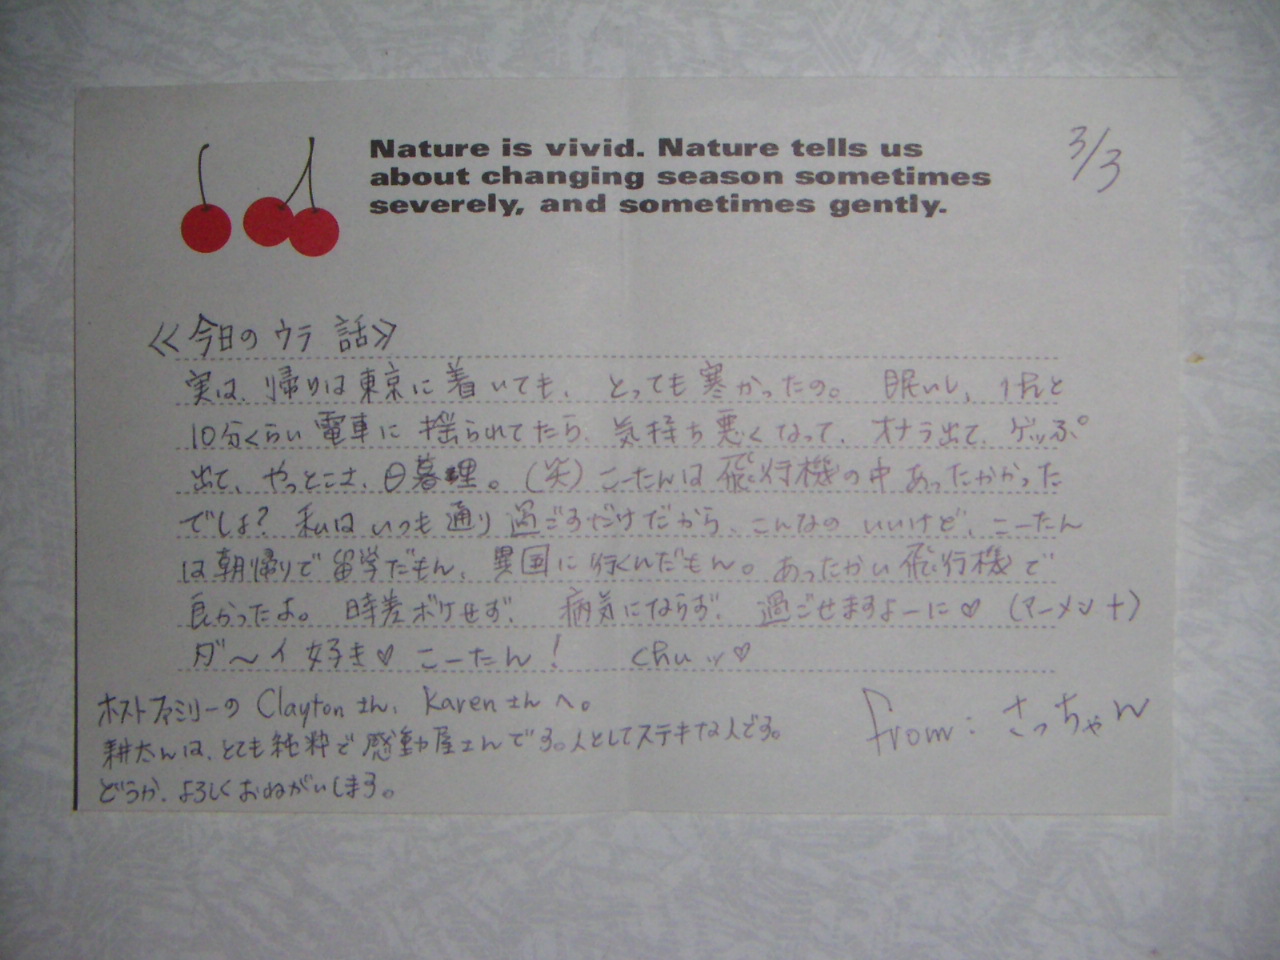 Nature is vivid. Nature tells us
about changing season sometimes
severely, and sometimes gently.
3/3
≪今日のウラ話≫
実は、帰りは東京に着いても、とっても寒かったの。眠いし、1h と
10分くらい電車に揺られてたら、気持ち悪くなって、オナラ出て、ゲップ
出て、やっとこさ、日暮里。(笑)こーたんは飛行機の中あったかかった
でしょ?私はいつも通り過ごすだけだから、こんなのいいけど、こーたん
は朝帰りで留学だもん、異国に行くんだもん。あったかい飛行機で
良かったよ。時差ボケせず、病気にならず、過ごせますよーに♡(アーメン十)
ダ〜イ好き♡こーたん! chuッ♡
ホストファミリーの Claytonさん、Karenさんへ。
耕太んは、とても純粋で感動屋さんです。人としてステキな人です。
どうか、よろしくおねがいします。
from:さっちゃん